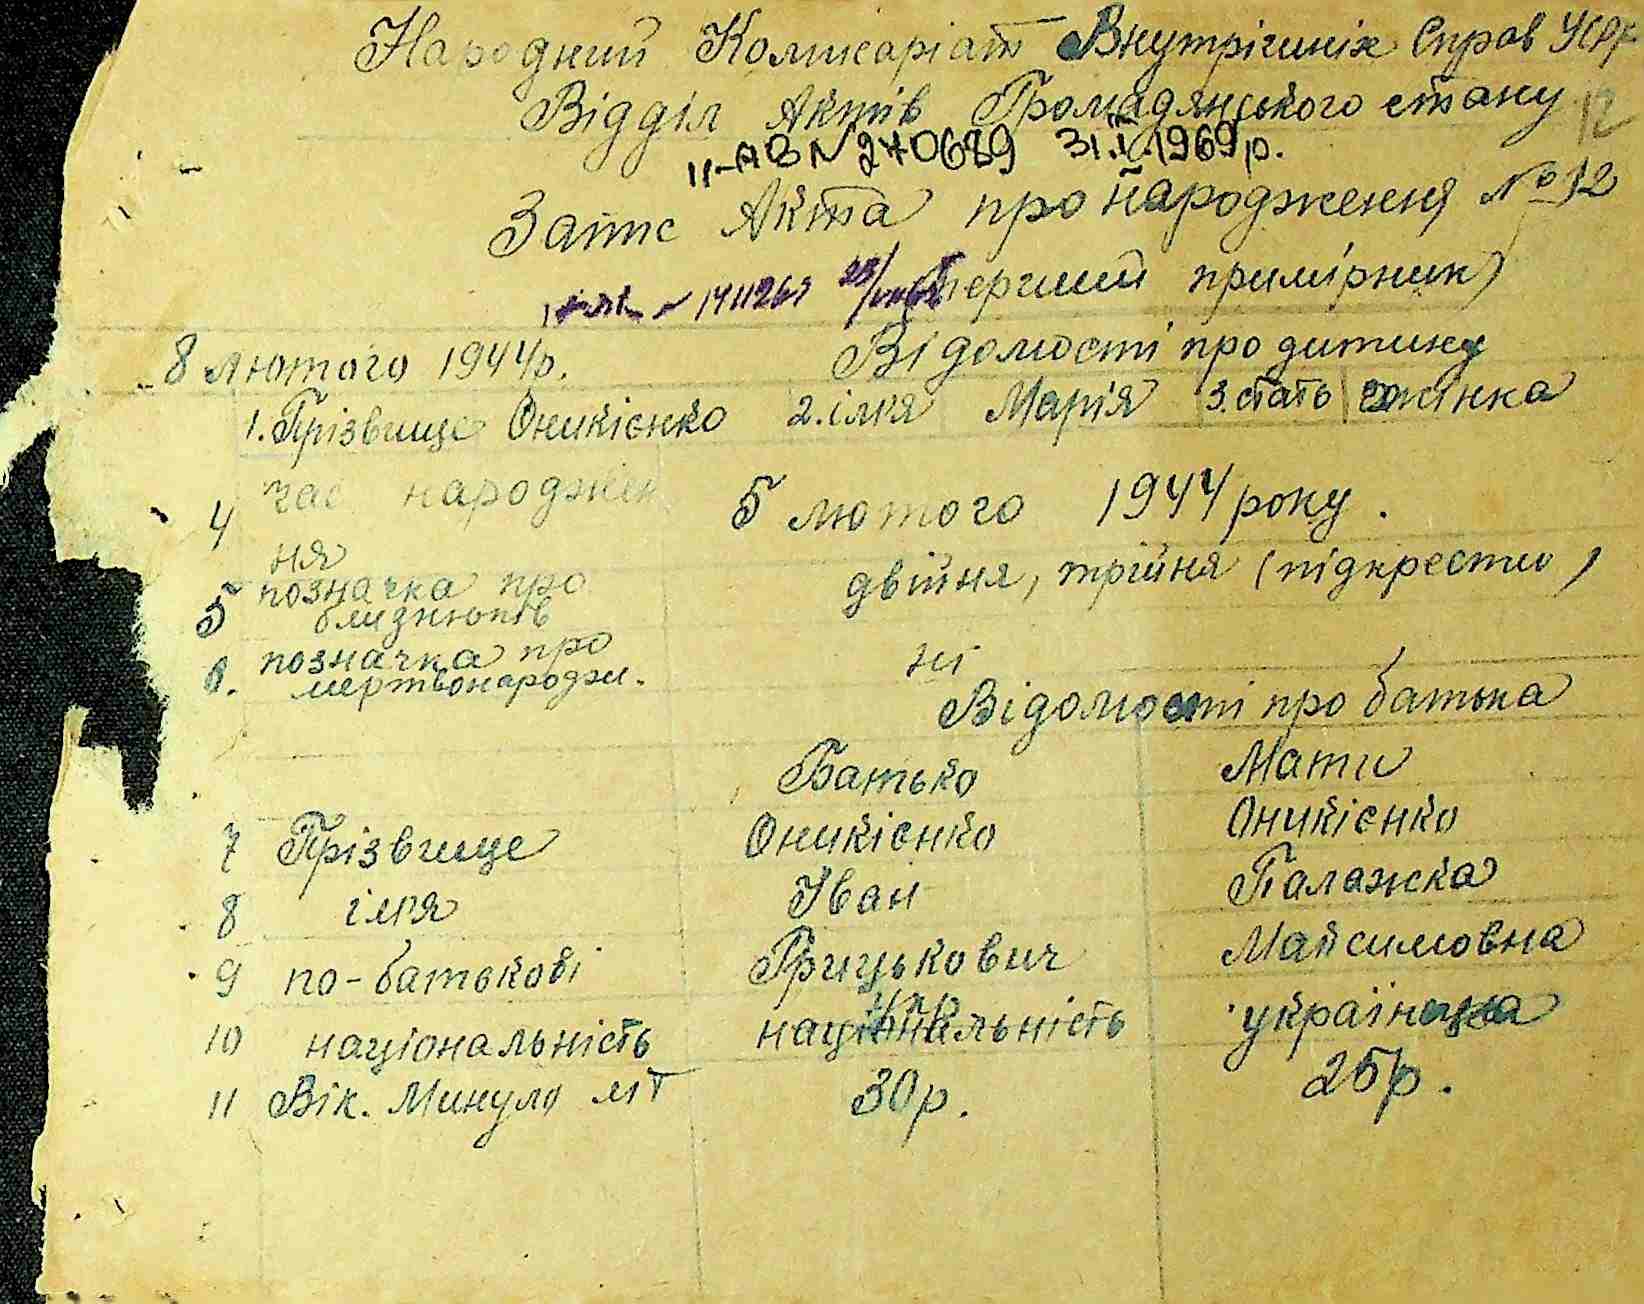 Народний Комісаріат Внутрішніх Справ УСРР
Відділ Актів Громадянського стану 12
II-АВ N 270689 31.X.1969р.
Запис Акта про народження № 12
(перший примірник)
8 лютого 1944р. Відомості про дитину
1. Прізвище Оникієнко 2. ім'я Марія 3. стать жінка
4 час народжен 5 лютого 1944 року.
ня
5 позначка про двійня, трійня (підкрести)
близнюків
6. позначка про ні
мертвонародж.
Відомості про батька
Батько Мати
7 Прізвище Оникієнко Оникієнко
8 ім'я Іван Палажка
9 по-батькові Грицькович Максимовна
укр
10 національність національність українка
11 Вік. Минуло літ 30р. 25р.